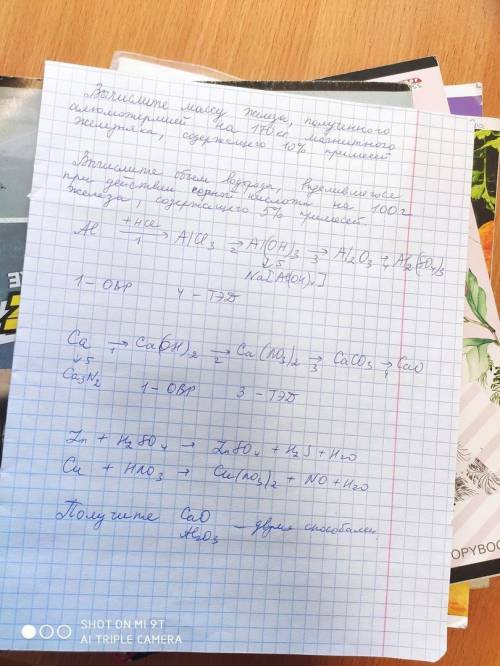 Вычислите массу железа, полученного
алюмотермией на 170кг магнитного
железняка, содержащего 10% примесей
Вычислите объем водорода, выделившегося
при действии серной кислоты на 100г
железа, содержащего 5% примесей.
Al +HCl → 1 AlCl3 → 2 Al(OH)3 → 3 Al2O3 → 4 Al2(SO4)3
↓5
Na[Al(OH)4]
1 - ОВР 4 - ТЭД
Ca → 1 Ca(OH)2 → 2 Ca(NO3)2 → 3 CaCO3 → 4 CaO
↓5
Ca3N2 1 - ОВР 3 - ТЭД
Zn + H2SO4 → ZnSO4 + H2S + H2O
Cu + HNO3 → Cu(NO3)2 + NO + H2O
Получите CaO
Al2O3 - двумя способами.
OPYBOO
SHOT ON MI 9T
AI TRIPLE CAMERA